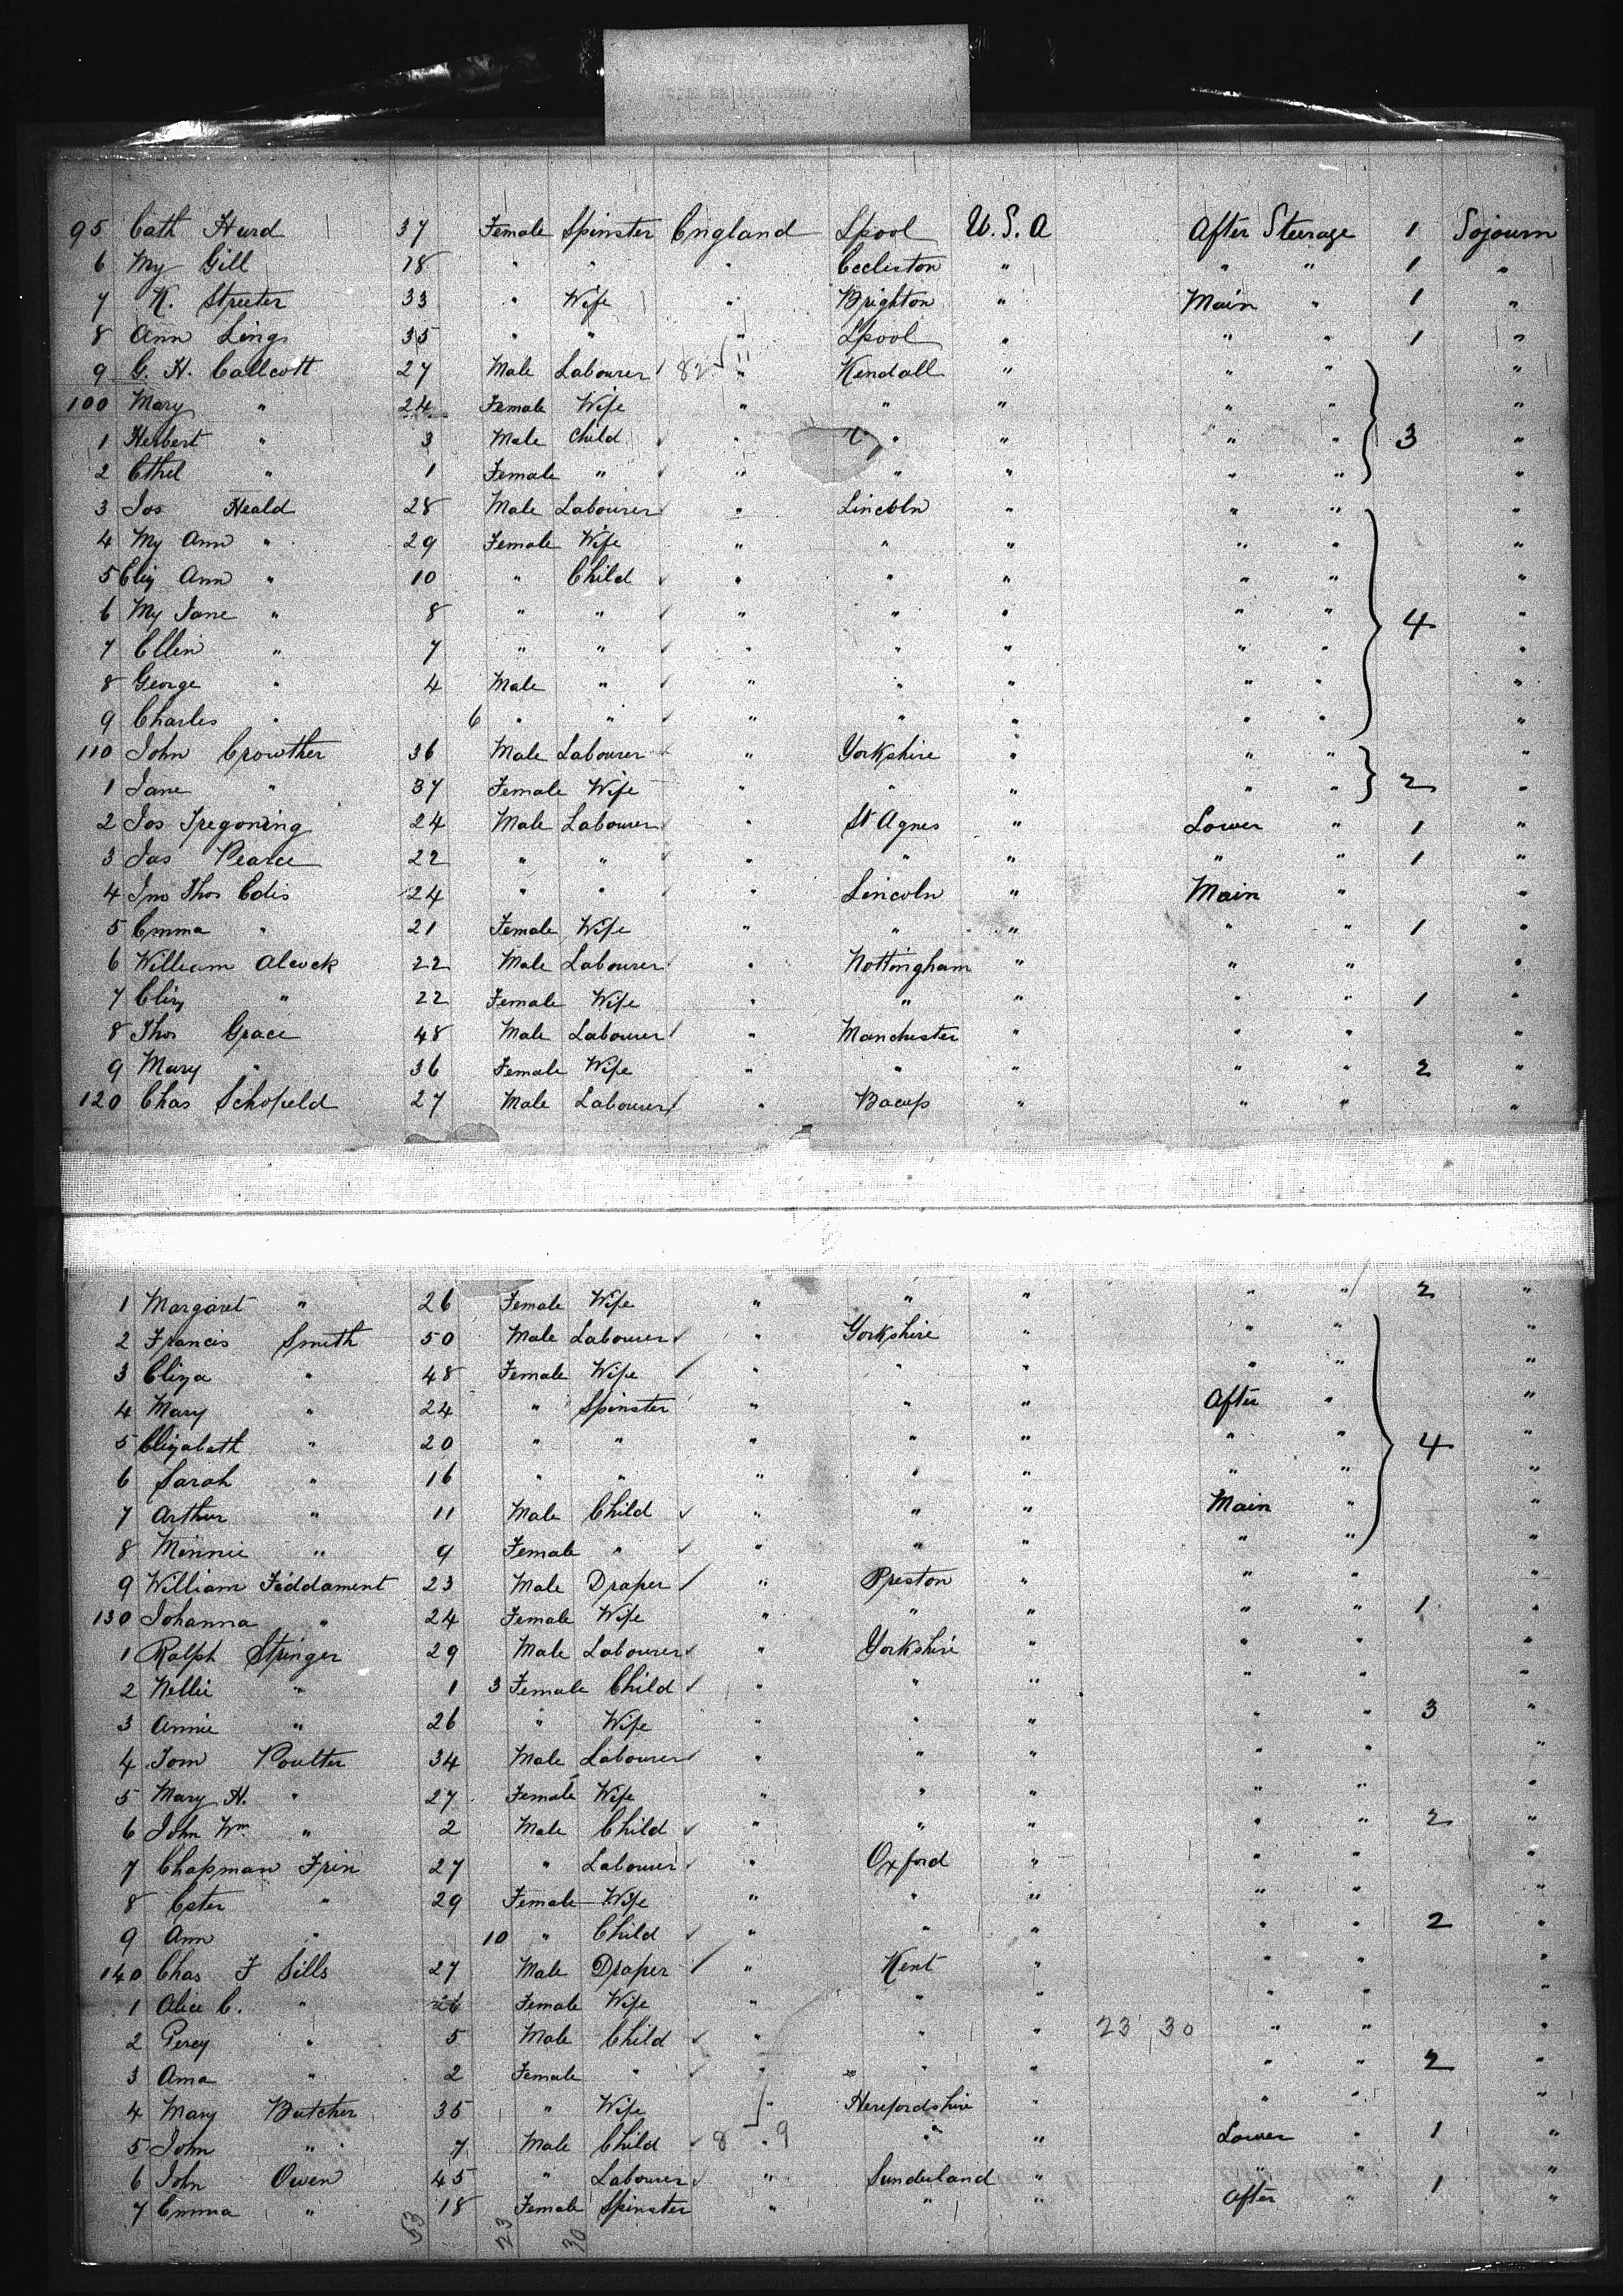 95 Cath Hurd 37 Female Spinster England Lpool U.S.A After Steerage 1 Sojourn
6 My Gill 18 " " " Eccleston " " " 1 "
7 K. Streeter 33 " Wife " Brighton " Main " 1 "
8 Ann Lings 35 " " " Lpool " " " 1 "
9 G. H. Callcott 27 Male Labourer 82 " Kendall " " " "
100 Mary " 24 Female Wife " " " " " "
1 Herbert " 3 Male Child " " " " " 3 "
2 Ethel " 1 Female " " " " " " "
3 Jos Heald 28 Male Labourer " Lincoln " " " "
4 My Ann " 29 Female Wife " " " " " "
5 Eliz Ann " 10 " Child " " " " " "
6 My Jane " 8 " " " " " " " 4 "
7 Ellen " 7 " " " " " " " "
8 George " 4 Male " " " " " " "
9 Charles " 6 " " " " " " " "
110 John Crowther 36 Male Labourer " Yorkshire " " " "
1 Jane " 37 Female Wife " " " " " 2 "
2 Jos Tregoning 24 Male Labourer " St Agnes " Lower " 1 "
3 Jas Pearce 22 " " " " " " " 1 "
4 Jno Thos Edis 24 " " " Lincoln " Main " "
5 Emma " 21 Female Wife " " " " " 1 "
6 William Alcock 22 Male Labourer " Nottingham " " " "
7 Eliz " 22 Female Wife " " " " " 1 "
8 Thos Grace 48 Male Labourer " Manchester " " " "
9 Mary " 36 Female Wife " " " " " 2 "
120 Chas Schofield 27 Male Labourer " Bacup " " " "
1 Margaret " 26 Female Wife " " " " " 2 "
2 Francis Smith 50 Male Labourer " Yorkshire " " " "
3 Eliza " 48 Female Wife " " " " " "
4 Mary " 24 " Spinster " " " After " "
5 Elizabeth " 20 " " " " " " " 4 "
6 Sarah " 16 " " " " " " " "
7 Arthur " 11 Male Child " " " Main " "
8 Minnie " 9 Female " " " " " " "
9 William Fiddament 23 Male Draper " Preston " " " "
130 Johanna " 24 Female Wife " " " " " 1 "
1 Ralph Stringer 29 Male Labourer " Yorkshire " " " "
2 Nellie " 1 3 Female Child " " " " " "
3 Annie " 26 " Wife " " " " " 3 "
4 Tom Poulter 34 Male Labourer " " " " " "
5 Mary H. " 27 Female Wife " " " " " "
6 John Wm " 2 Male Child " " " " " 2 "
7 Chapman Frin 27 " Labourer " Oxford " " " "
8 Ester " 29 Female Wife " " " " " "
9 Ann " 10 " Child " " " " " 2 "
140 Chas F Sills 27 Male Draper " Kent " " " "
1 Alice C. " 26 Female Wife " " " " " "
2 Percy " 5 Male Child " " " 23 30 " " "
3 Ama " 2 Female " " " " " " 2 "
4 Mary Butcher 35 " Wife " Herefordshire " " " "
5 John " 7 Male Child 8 " 9 " " Lower " 1 "
6 John Owen 45 " Labourer " Sunderland " " " 1 "
7 Emma " 18 Female Spinster " " " After " "
53 23 30